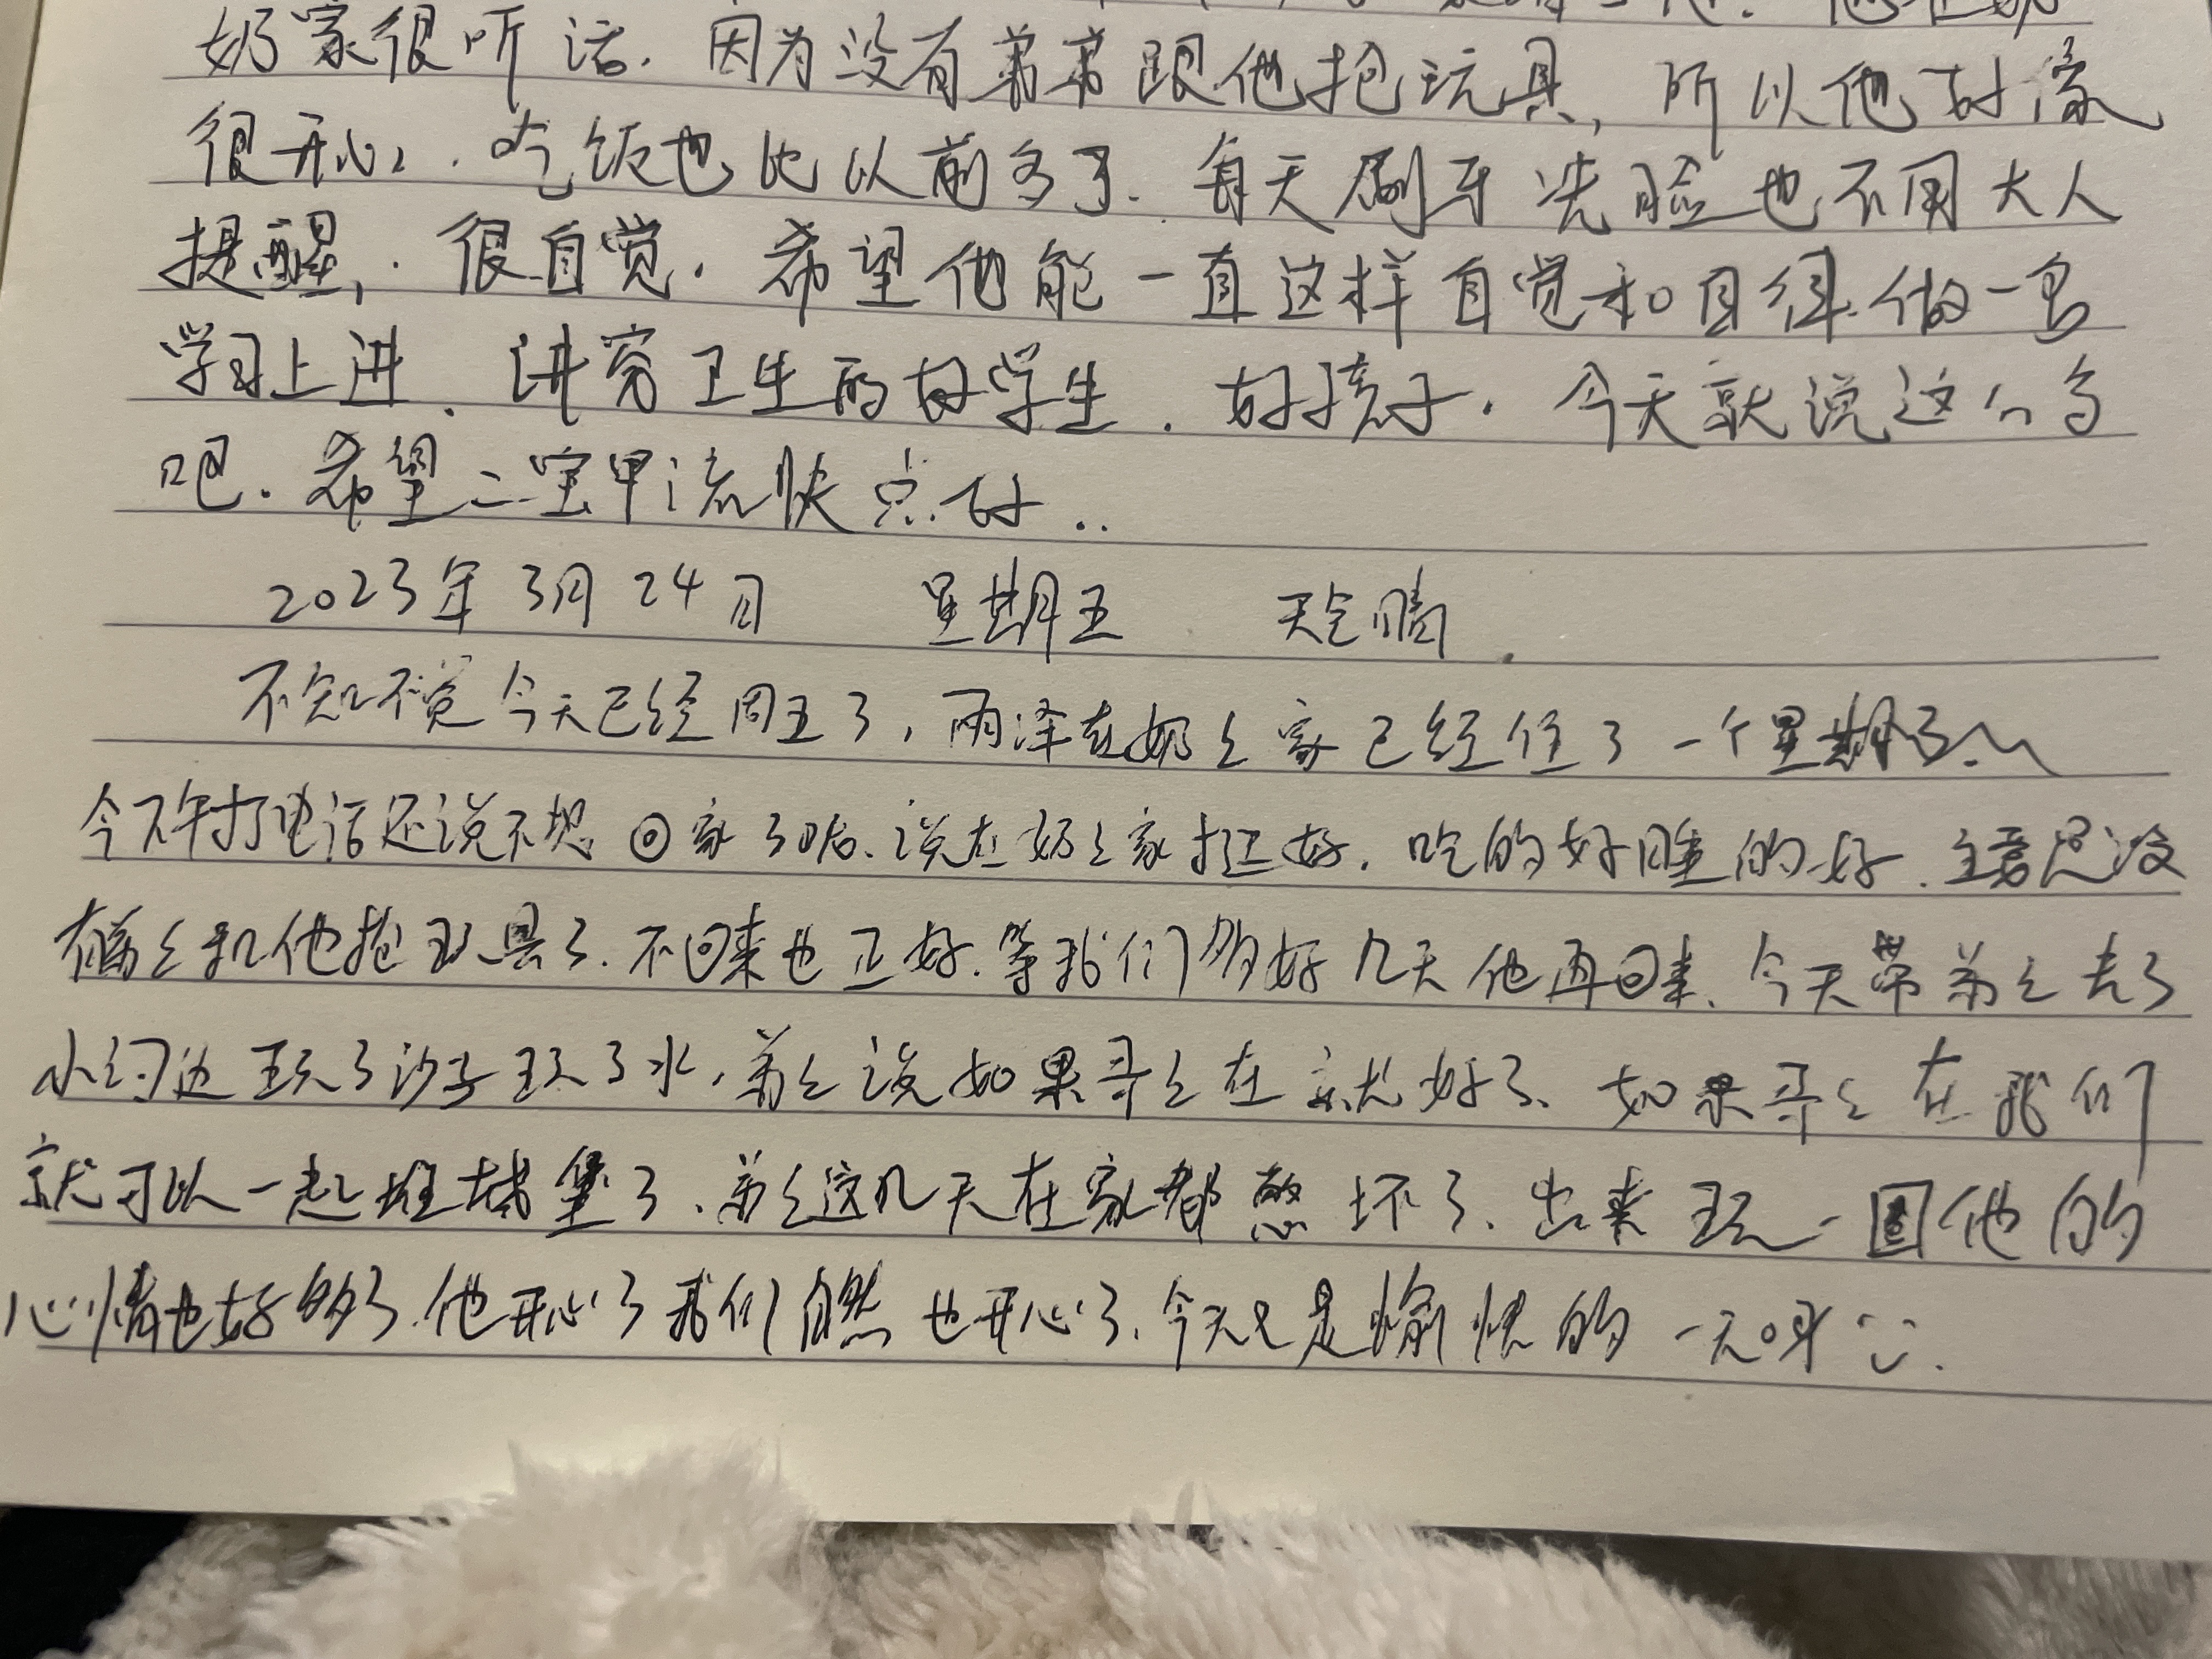 奶家很听话.因为没有弟弟跟他抢玩具,所以他好像
很开心.吃饭也比以前多了.每天刷牙洗脸也不用大人
提醒,.很自觉.希望他能一直这样自觉和自律.做一名
学习上进、讲究卫生的好学生.好孩子.今天就说这么多
吧.希望二宝甲流快点好..
2023年3月24日 星期五 天气晴.
不知不觉今天已经周五了,雨泽在奶々家已经住了一个星期了.
今下午打电话还说不想回家了哈.说在奶々家挺好.吃的好睡的好.主要是没
有弟々和他抢玩具了.不回来也正好.等我们多好几天他再回来.今天带弟々去了
小河边玩了沙子玩了水,弟々说如果哥々在就好了、如果哥々在我们
就可以一起堆城堡了.弟々这几天在家都憋坏了.出来玩一圈他的
心情也好多了.他开心了我们自然也开心了.今天又是愉快的一天呀